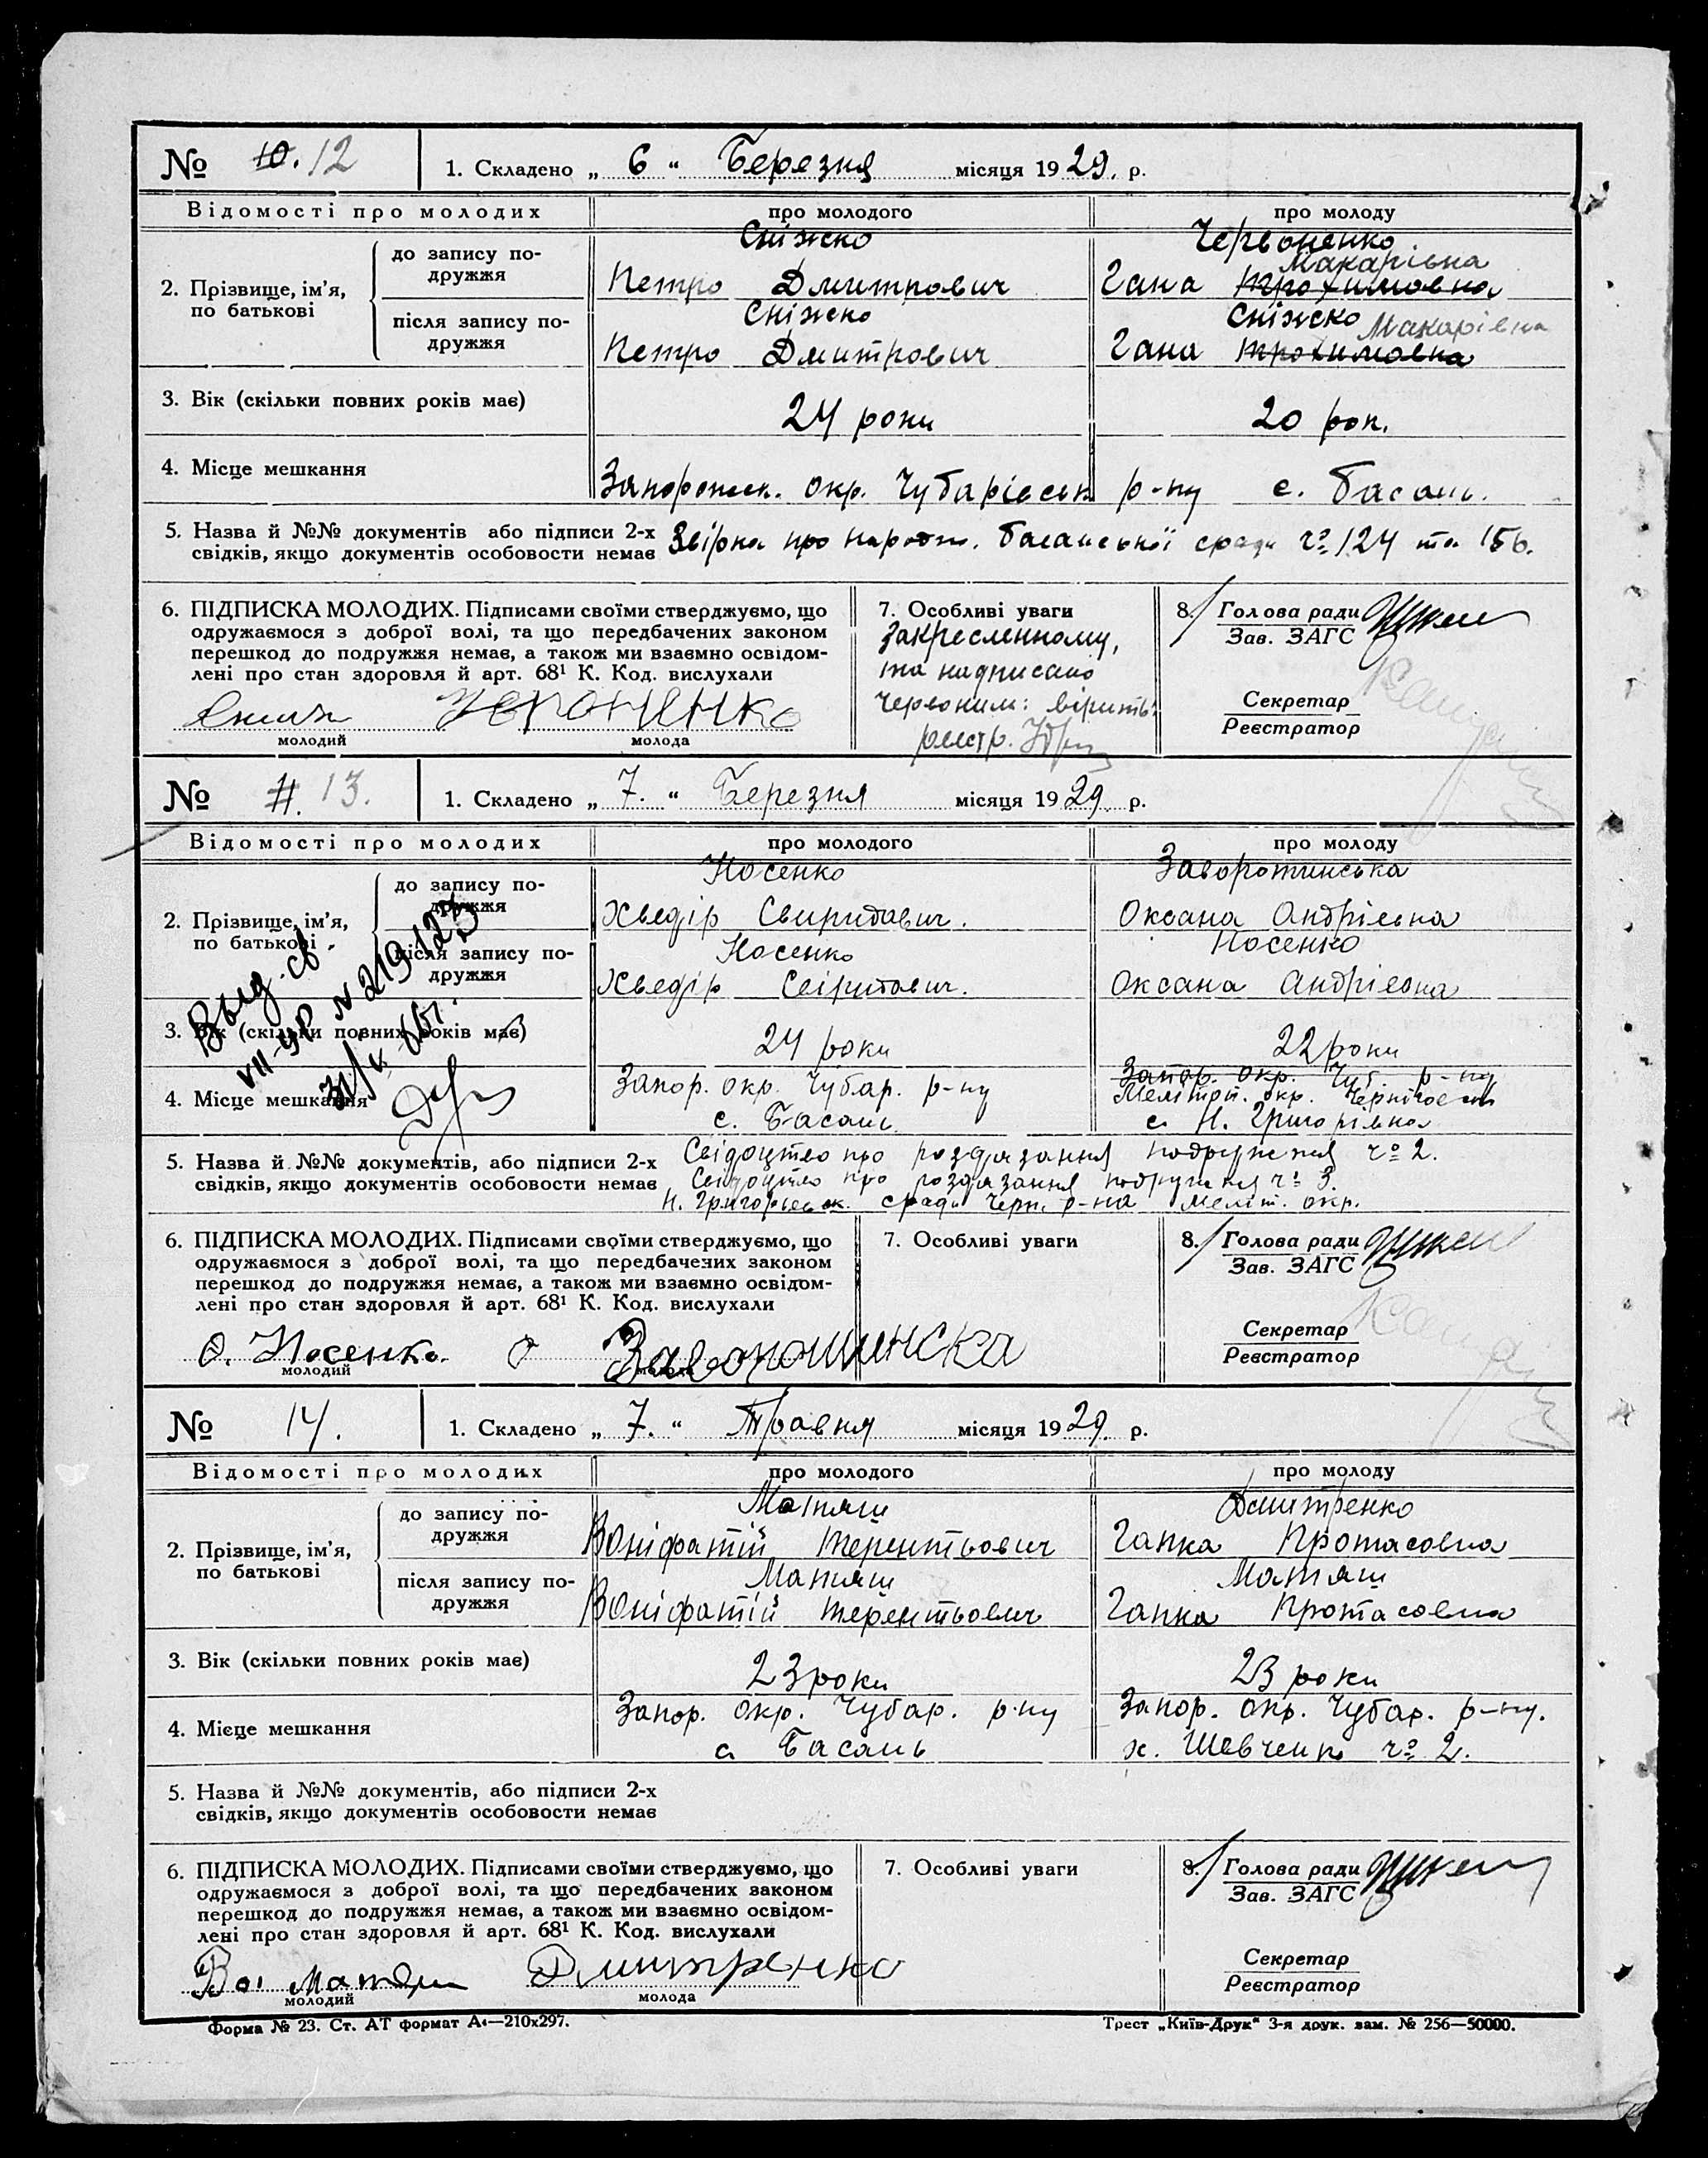 № 10. 12 1. Складено „ 6 “ Березня місяця 1929. р.
Відомості про молодих про молодого про молоду
2. Прізвище, ім’я, по батькові
до запису подружжя
Сніжко
Петро Дмитрович
Червоненко
Макарівна
Гана Трохимовна
після запису подружжя
Сніжко
Петро Дмитрович
Сніжко Макарівна
Гана Трохимовна
3. Вік (скільки повних років має) 24 роки 20 рок.
4. Місце мешкання Запорожск. окр. Чубарівськ р-ну с. Басань.
5. Назва й №№ документів або підписи 2-х
свідків, якщо документів особовости немає
Звірка про народж. Басанської сради ч° 124 та 156.
6. ПІДПИСКА МОЛОДИХ. Підписами своїми стверджуємо, що
одружаємося з доброї волі, та що передбачених законом
перешкод до подружжя немає, а також ми взаємно освідом-
лені про стан здоровля й арт. 68¹ К. Код. вислухали
молодий молода
7. Особливі уваги
Закресленному,
та надписано
червоним: вірить:
реєстр.
8. Голова ради
Зав. ЗАГС
Секретар
Реєстратор
№ 11. 13. 1. Складено „ 7. “ Березня місяця 1929. р.
Відомості про молодих про молодого про молоду
2. Прізвище, ім’я, по батькові
до запису подружжя
Носенко
Хведір Свиридович.
Заворотинська
Оксана Андрієвна
після запису подружжя
Носенко
Хведір Свіридович.
Носенко
Оксана Андрієвна
Выд. св.
VII-УР № 219127
3. Вік (скільки повних років має) 24 роки 22 роки
4. Місце мешкання
Запор. окр. Чубар. р-ну
с. Басань
Запор. окр. Чуб. р-ну
Меlітоп. окр. Чернігов
с. Н. Григорівка
5. Назва й №№ документів, або підписи 2-х
свідків, якщо документів особовости немає
Свідоцтво про розвязання подружжя ч° 2.
Свідоцтво про розвязання подружжя ч° 3.
Н. Григорьевск. сради Черн. р-на Меліт. окр.
6. ПІДПИСКА МОЛОДИХ. Підписами своїми стверджуємо, що
одружаємося з доброї волі, та що передбачених законом
перешкод до подружжя немає, а також ми взаємно освідом-
лені про стан здоровля й арт. 68¹ К. Код. вислухали
О. Носенко
молодий молода
7. Особливі уваги
8. Голова ради
Зав. ЗАГС
Секретар
Реєстратор
№ 14. 1. Складено „ 7. “ Травня місяця 1929. р.
Відомості про молодих про молодого про молоду
2. Прізвище, ім’я, по батькові
до запису подружжя
Матяш
Воніфатій Терентьович
Дмитренко
Гапка Протасовна
після запису подружжя
Матяш
Воніфатій Терентьович
Матяш
Гапка Протасовна
3. Вік (скільки повних років має) 23 роки 23 роки
4. Місце мешкання
Запор. окр. Чубар. р-ну
с. Басань
Запор. окр. Чубар. р-ну.
х. Шевченк ч° 2.
5. Назва й №№ документів, або підписи 2-х
свідків, якщо документів особовости немає
6. ПІДПИСКА МОЛОДИХ. Підписами своїми стверджуємо, що
одружаємося з доброї волі, та що передбачених законом
перешкод до подружжя немає, а також ми взаємно освідом-
лені про стан здоровля й арт. 68¹ К. Код. вислухали
Во. Матяш Дмитренко
молодий молода
7. Особливі уваги
8. Голова ради
Зав. ЗАГС
Секретар
Реєстратор
Форма № 23. Ст. АТ формат А₄—210x297. Трест „Київ-Друк“ 3-я друк. зам. № 256—50000.